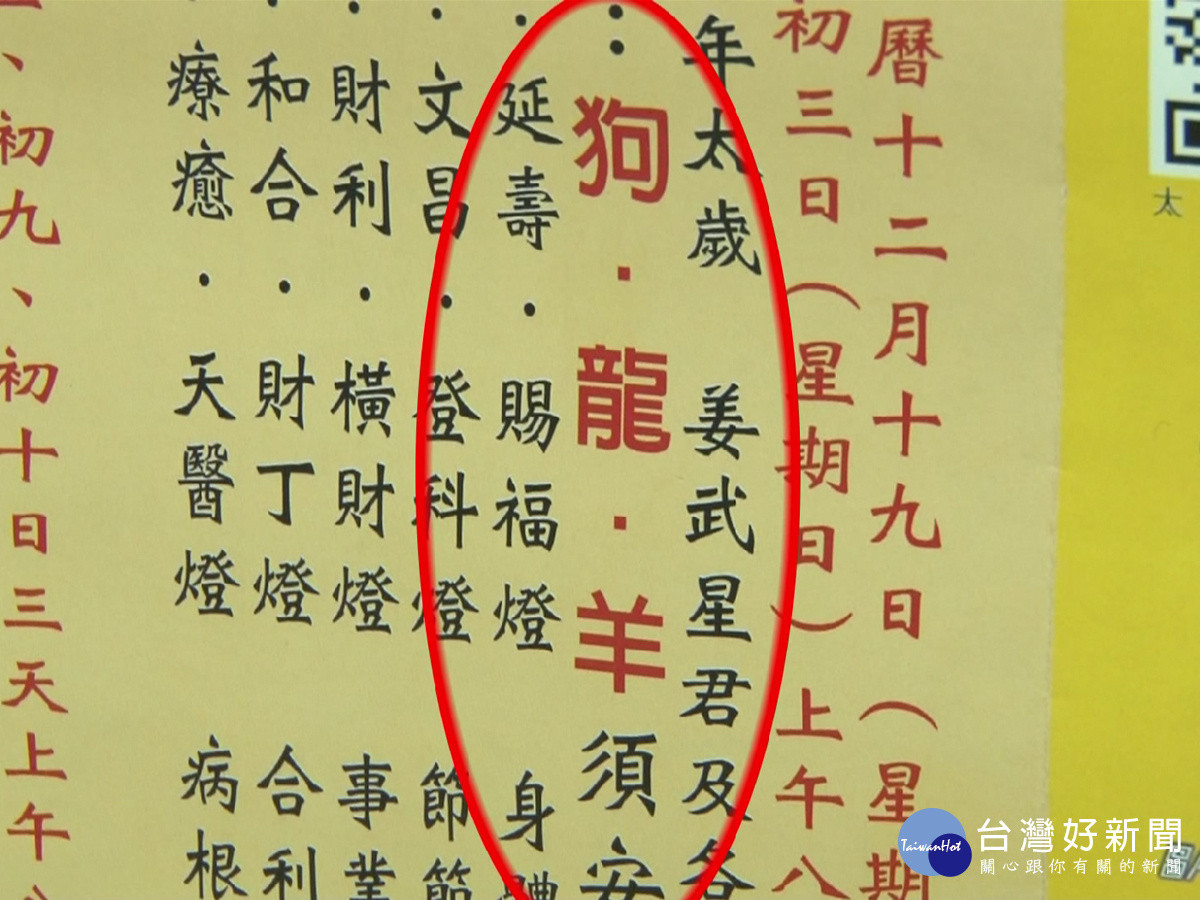 太
曆十二月十九日（星期
初三日（星期日）上午八
年太歲 姜武星君及各
：狗．龍．羊須安
．延壽．賜福燈 身體
．文昌．登科燈 節節
．財利．橫財燈 事業
．和合．財丁燈 合利
．療癒．天醫燈 病根
、初九、初十日三天上午八
台灣好新聞
TaiwanHot
關心跟你有關的新聞